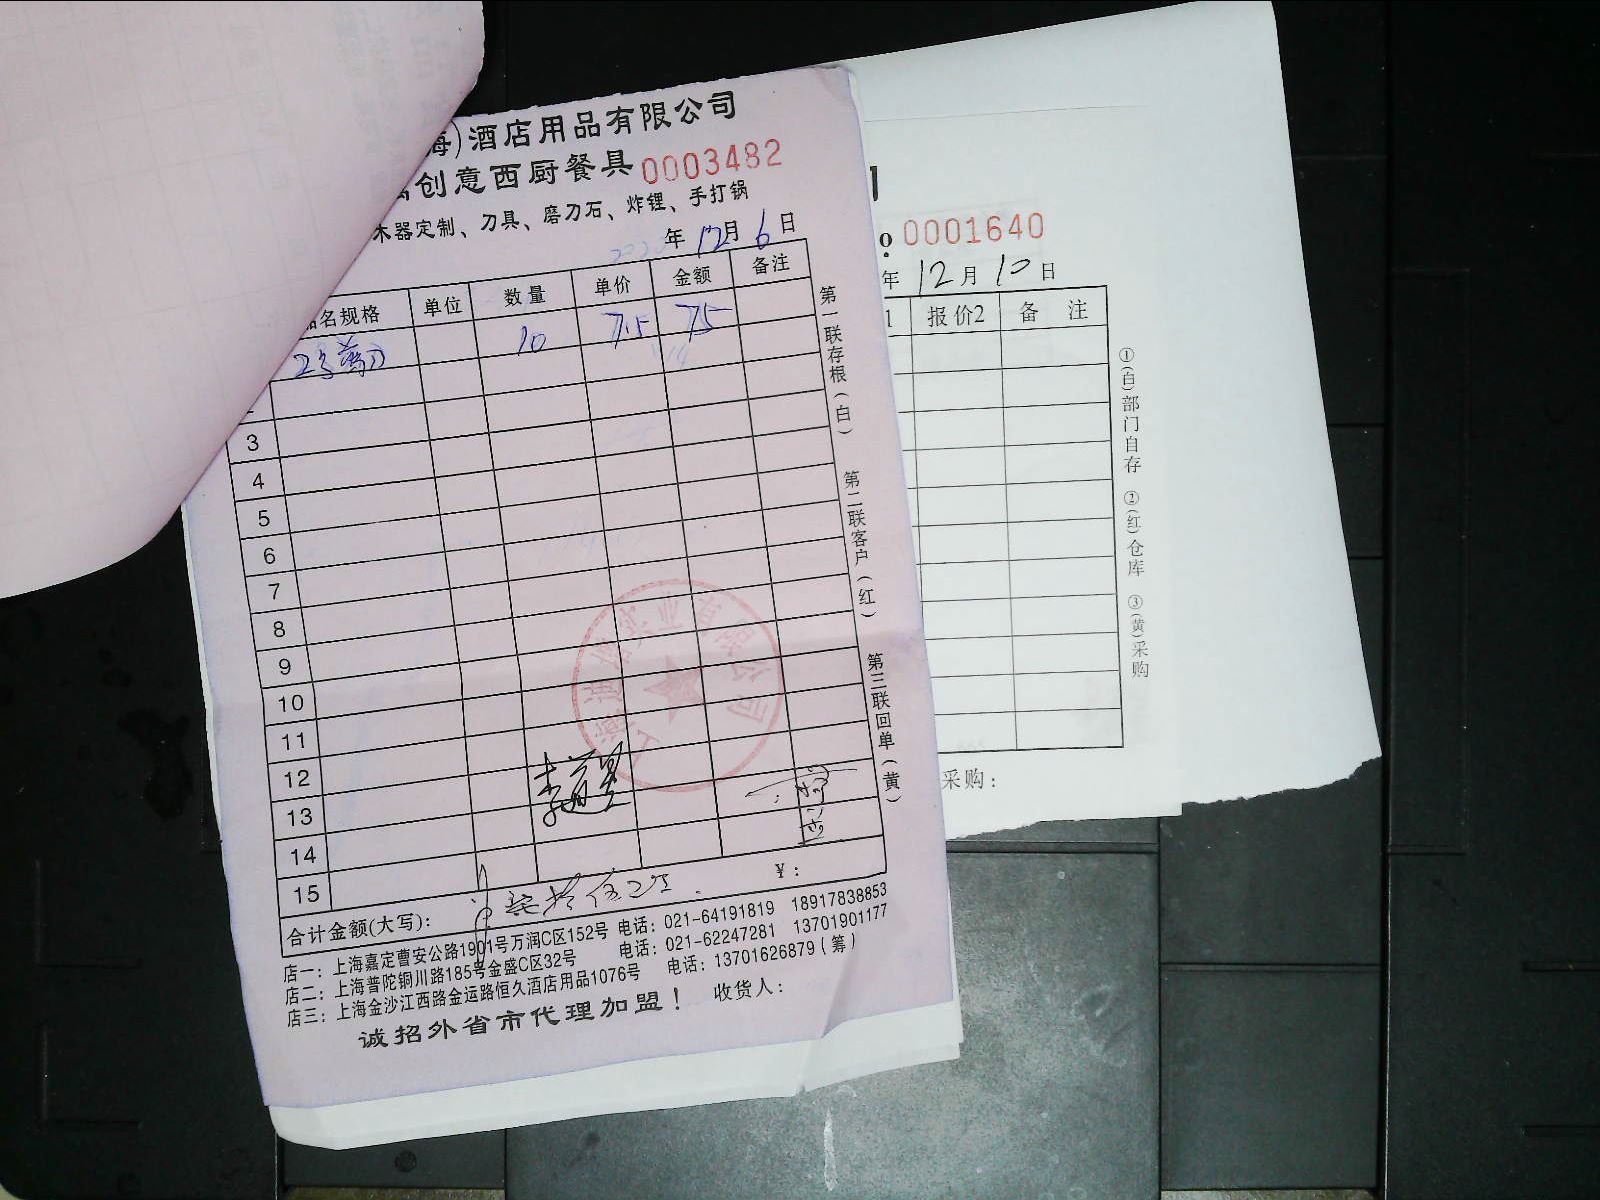 海)酒店用品有限公司
创意西厨餐具 0003482
木器定制、刀具、磨刀石、炸锂、手打锅
年 12月 6日
品名规格 单位 数量 单价 金额 备注
2号 10 7.5 75
3
4
5
6
7
8
9
10
11
12
13
14
15
合计金额(大写): 柒拾伍元 ¥:
店一: 上海嘉定曹安公路1901号万润C区152号 电话: 021-64191819 18917838853
店二: 上海普陀铜川路185号金盛C区32号 电话: 021-62247281 13701901177
店三: 上海金沙江西路金运路恒久酒店用品1076号 电话: 13701626879(筹)
诚招外省市代理加盟! 收货人:
第一联存根(白) 第二联客户(红) 第三联回单(黄)
上海 实业有限公司
o. 0001640
年 12月 10日
1 报价2 备 注
①(白)部门自存 ②(红)仓库 ③(黄)采购
采购: